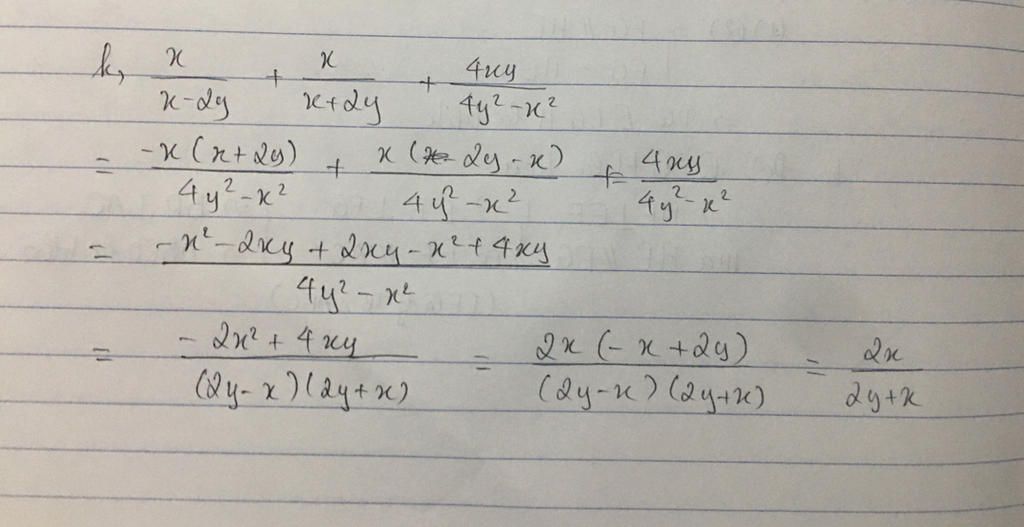 k, x/(x-2y) + x/(x+2y) + 4xy/(4y²-x²)
= -x(x+2y)/(4y²-x²) + x(2y-x)/(4y²-x²) + 4xy/(4y²-x²)
= (-x²-2xy+2xy-x²+4xy)/(4y²-x²)
= (-2x²+4xy)/((2y-x)(2y+x)) = 2x(-x+2y)/((2y-x)(2y+x)) = 2x/(2y+x)